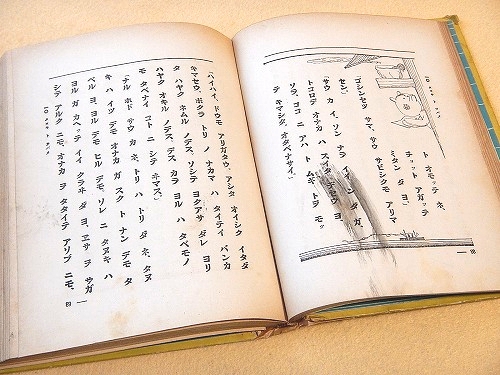 ト オモッテ、
チョット アガッテ
ミタンダヨ。
サビシクモ アリマ
セン。」
「ゴシンセツ サマ、サウ
「サウ カイ、ソンナラ イインダガ、
トコロデ オナカハ スイタデセウ ヨ、
ソラ、ココニ アハト ムギトヲ モッ
テ キマシタ、オタベナサイ。」
「ハイハイ、ドウモ アリガタウ。アシタ オイシク イタダ
キマセウ。ボクラ トリノ ナカマハ タイテイ バンカ
タ ハヤク ネムル ノデス、ソシテ ヨクアサ ダレ ヨリ
ハヤク オキル ノデス。デスカラ ヨルハ タベモノ
モ タベナイ コトニ シテ キマス。」
「ナルホド サウ カネ、トリハ トリ ダネ、タヌ
キハ イツデモ オナカガ スクト ナンデモ タ
ベル ヨ、ヨルデモ ヒルデモ。ソレニ タヌキハ
ヨルガ カヘッテ イイ クラヰ ダヨ、ヱサヲ サガ
シテ アルクニモ、オナカヲ タタイテ アソブニモ、